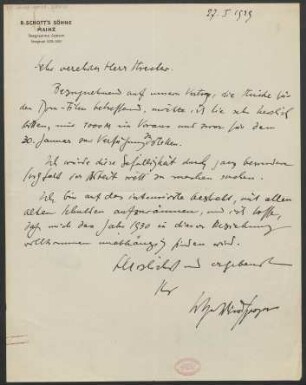 27. I 1929
B. SCHOTT'S SÖHNE
MAINZ
Sehr verehrter Herr Strecker.
Bezugnehmend auf unsern Vertrag, die Musik für
den Film betreffend, möchte ich Sie sehr herzlich
bitten, mir 1000 M im Voraus und zwar für den
30. Januar zur Verfügung zu stellen.
Ich würde diese Gefälligkeit durch ganz besondere
Sorgfalt der Arbeit wett zu machen suchen.
Ich bin auf das intensivste bestrebt, mit allen
alten Schulden aufzuräumen, und ich hoffe,
daß mich das Jahr 1930 in dieser Beziehung
vollkommen unabhängig finden wird.
Herzlichst und ergebenst
Ihr